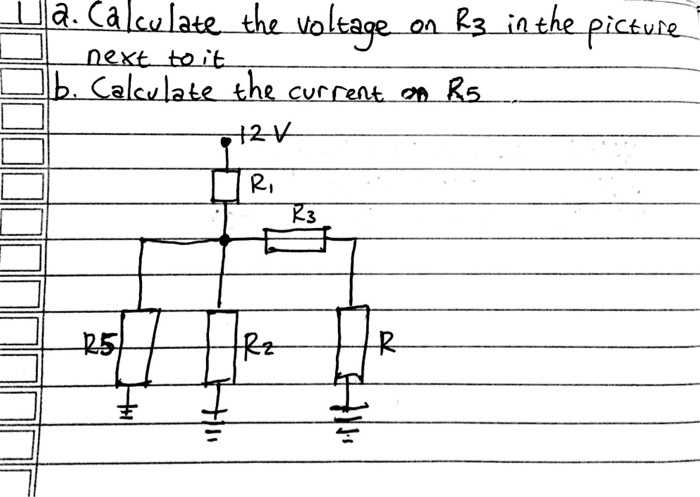 1 a. Calculate the voltage on R3 in the picture
next to it
b. Calculate the current on R5
12 V
R1
R3
R5
R2
R